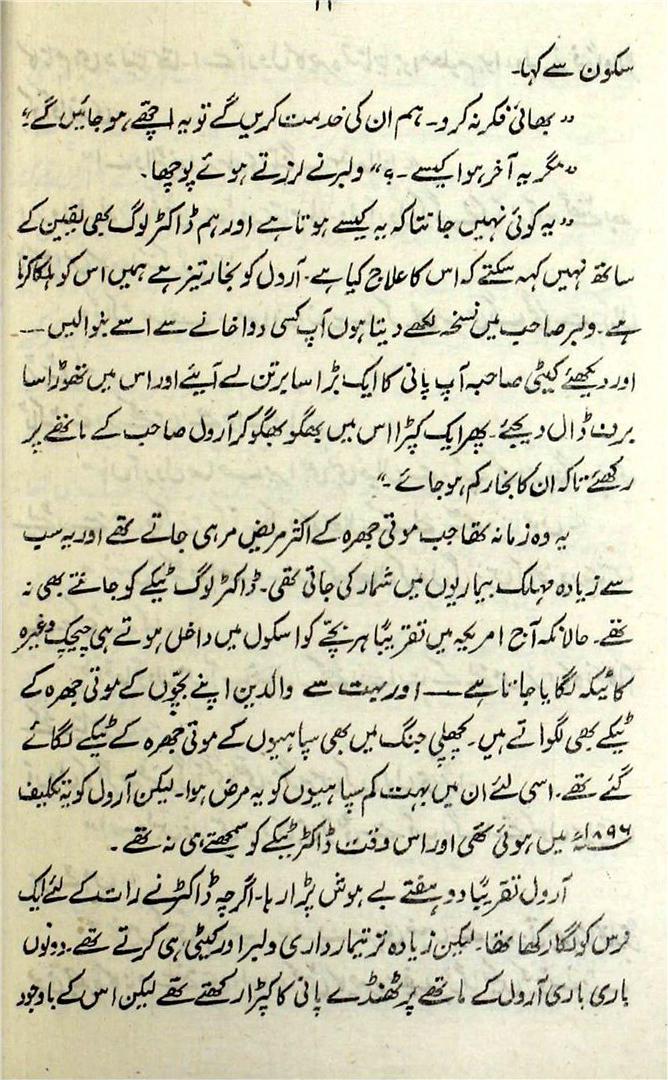 ۱۱
سکون سے کہا۔
"بھائی فکر نہ کرو۔ ہم ان کی خدمت کریں گے تو یہ اچھے ہو جائیں گے۔"
"مگر یہ آخر ہوا کیسے ۔؟" ولبر نے لرزتے ہوئے پوچھا۔
"یہ کوئی نہیں جانتا کہ یہ کیسے ہوتا ہے اور ہم ڈاکٹر لوگ بھی یقین کے
ساتھ نہیں کہہ سکتے کہ اس کا علاج کیا ہے۔ آرول کو بخار تیز ہے ہمیں اس کو ہلکا کرنا
ہے۔ ولبر صاحب میں نسخہ لکھے دیتا ہوں آپ کسی دواخانے سے اسے بنوالیں ——
اور دیکھئے کیٹی صاحبہ آپ پانی کا ایک بڑا سا برتن لے آیئے اور اس میں تھوڑا سا
برف ڈال دیجئے۔ پھر ایک کپڑا اس میں بھگو بھگو کر آرول صاحب کے ماتھے پر
رکھئے تاکہ ان کا بخار کم ہو جائے ۔"
یہ وہ زمانہ تھا جب موتی جھرہ کے اکثر مریض مر ہی جاتے تھے اور یہ سب
سے زیادہ مہلک بیماریوں میں شمار کی جاتی تھی۔ ڈاکٹر لوگ ٹیکے کو جانتے بھی نہ
تھے۔ حالانکہ آج امریکہ میں تقریباً ہر بچے کو اسکول میں داخل ہوتے ہی چیچک وغیرہ
کا ٹیکہ لگایا جاتا ہے —— اور بہت سے والدین اپنے بچّوں کے موتی جھرہ کے
ٹیکے بھی لگواتے ہیں۔ پچھلی جنگ میں بھی سپاہیوں کے موتی جھرہ کے ٹیکے لگائے
گئے تھے۔ اسی لئے ان میں بہت کم سپاہیوں کو یہ مرض ہوا۔ لیکن آرول کو یہ تکلیف
۱۸۹۶ء میں ہوئی تھی اور اس وقت ڈاکٹر ٹیکے کو سمجھتے ہی نہ تھے ۔
آرول تقریباً دو ہفتے بے ہوش پڑا رہا۔ اگرچہ ڈاکٹر نے رات کے لئے ایک
نرس کو لگا رکھا تھا۔ لیکن زیادہ تر تیمارداری ولبر اور کیٹی ہی کرتے تھے۔ دونوں
باری باری آرول کے ماتھے پر ٹھنڈے پانی کا کپڑا رکھتے تھے لیکن اس کے باوجود